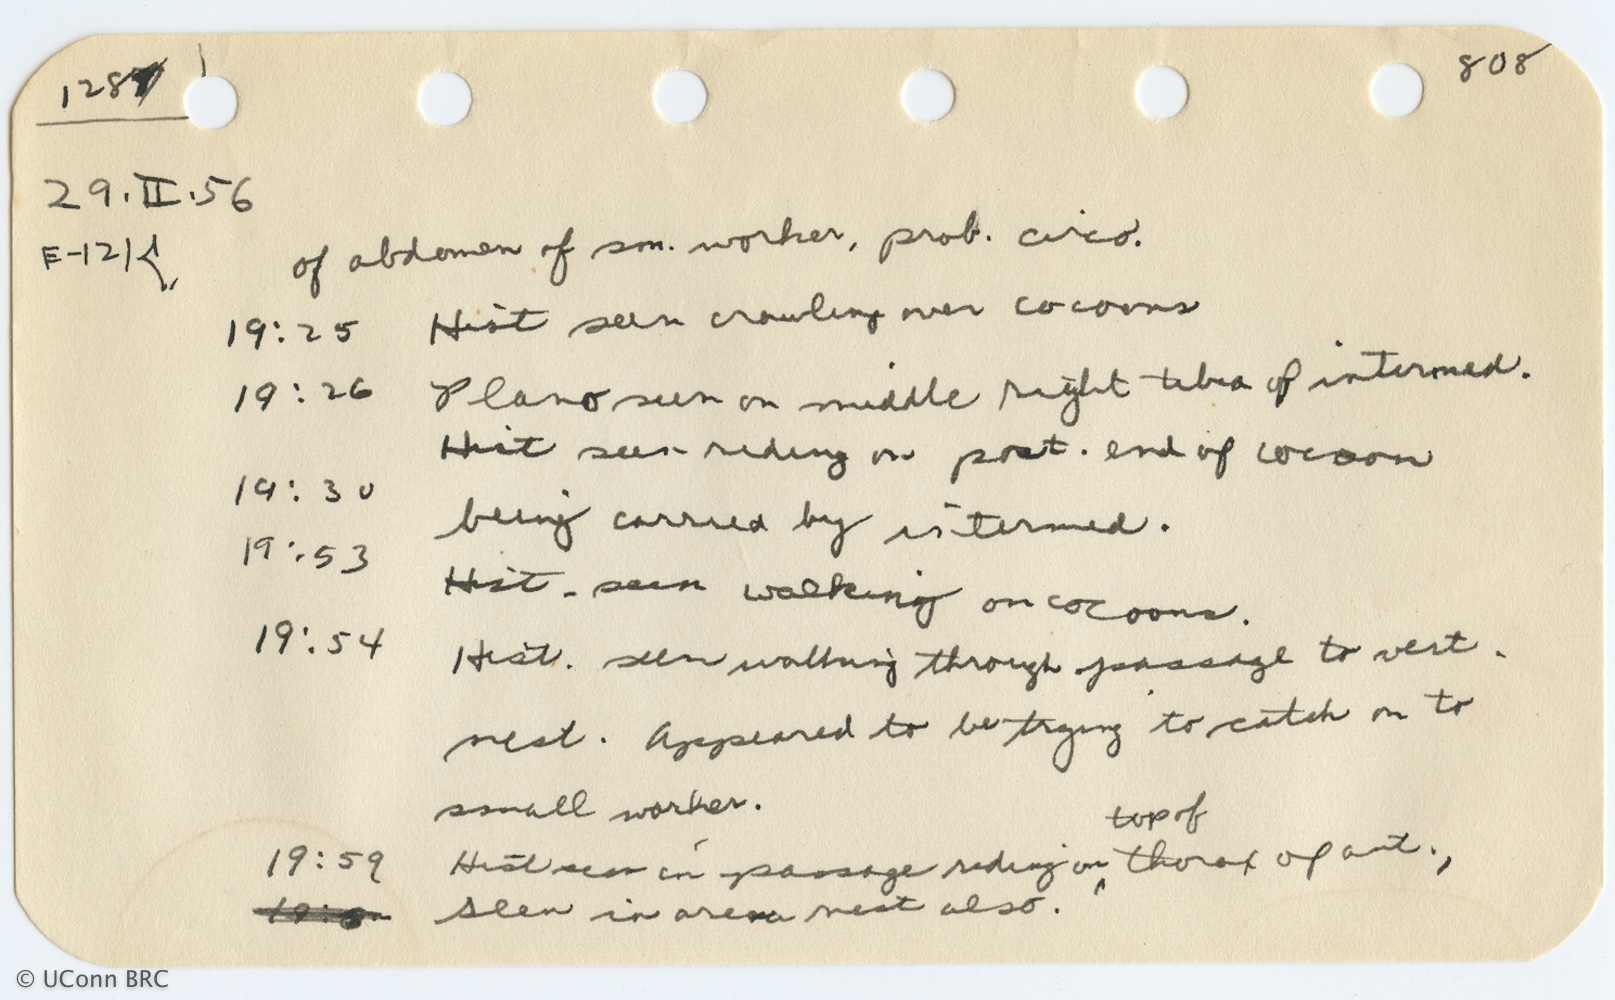 1287
808
29.II.56
E-121
of abdomen of sm. worker, prob. circo.
19:25 Hist seen crawling over cocoons
19:26 Plano seen on middle right tibia of intermed.
Hist seen riding on post. end of cocoon
19:30
being carried by intermed.
19:53
Hist. seen walking on cocoons.
19:54 Hist. seen walking through passage to vest.
nest. Appeared to be trying to catch on to
small worker.
top of
19:59 Hist seen in passage riding on ^ thorax of ant.,
seen in arena nest also.
© UConn BRC